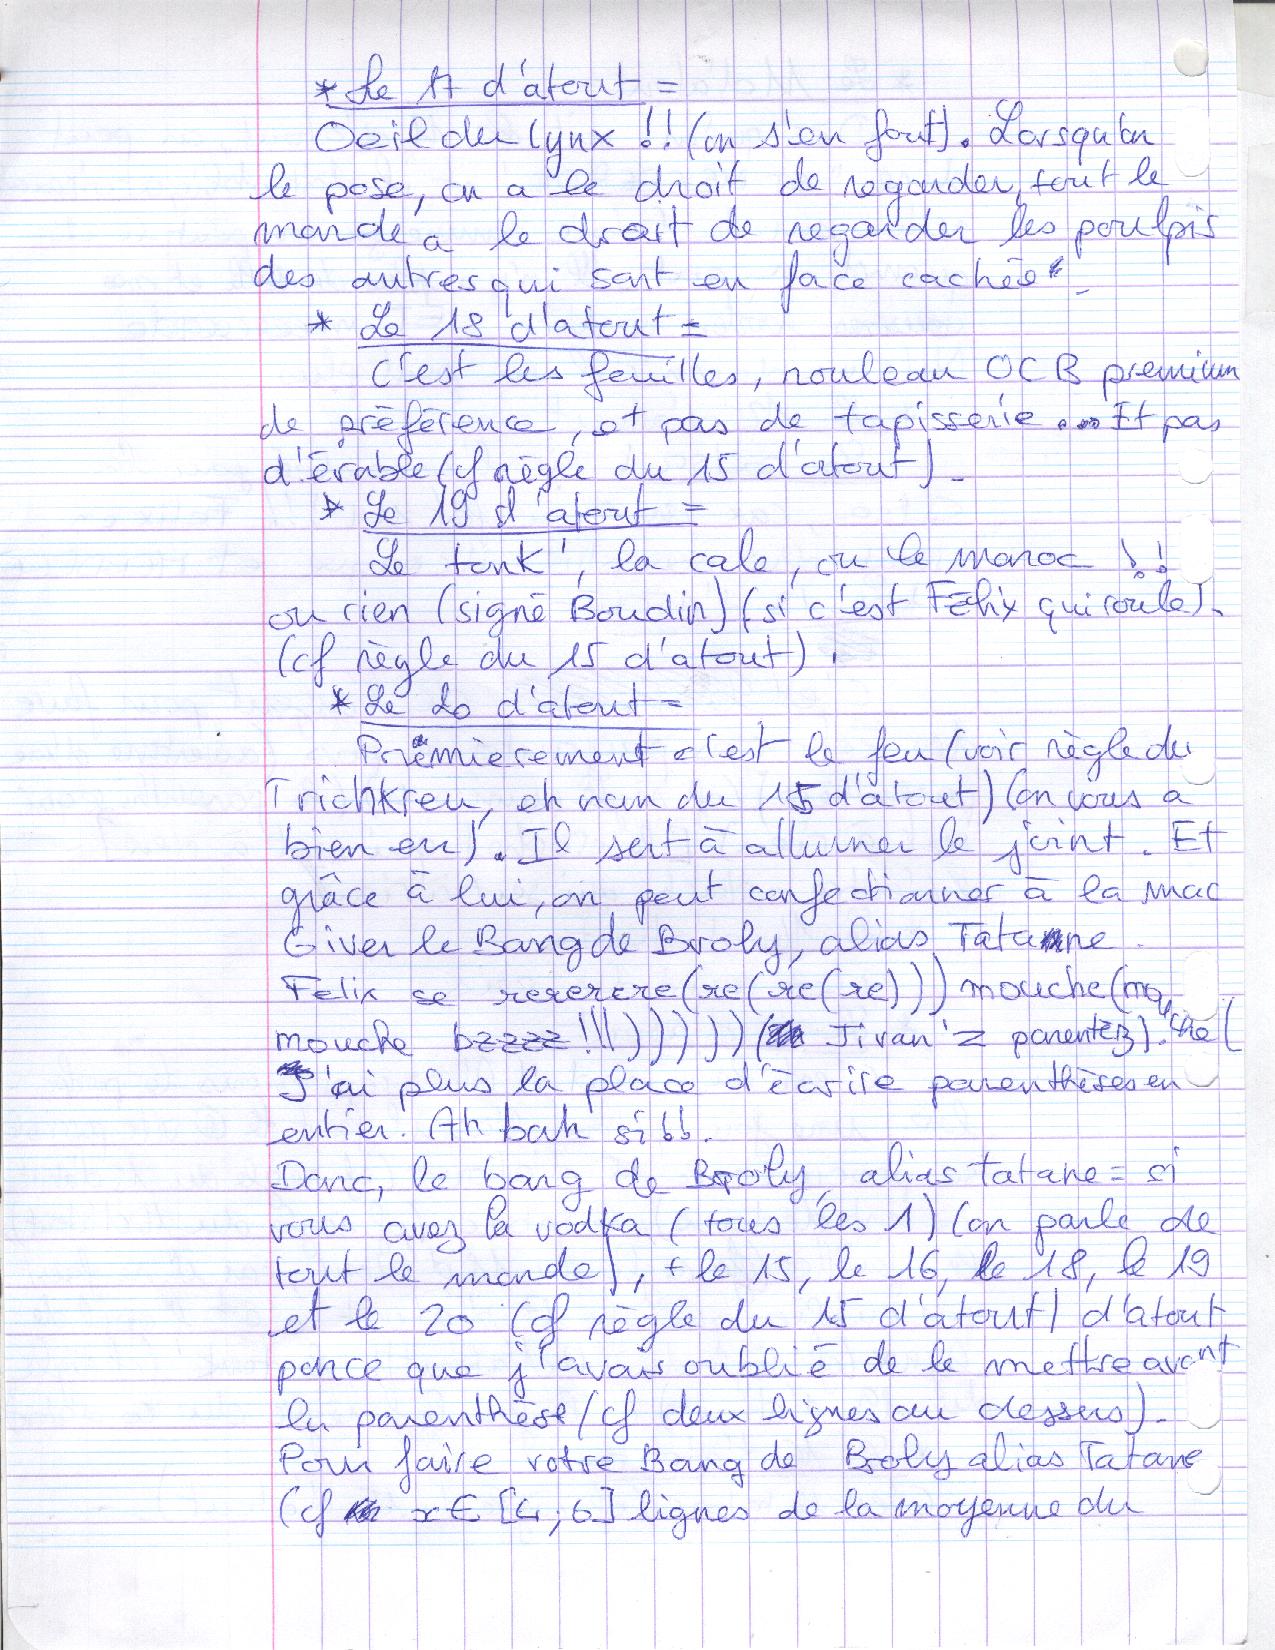 * Le 17 d'atout =
Oeil du lynx !! (on s'en fout). Lorsqu'on
le pose, on a le droit de regarder, tout le
monde a le droit de regarder les poulpis
des autres qui sont en face cachée.
* Le 18 d'atout =
C'est les feuilles, rouleau OCB premium
de préférence, et pas de tapisserie ... Et pas
d'érable (cf règle du 15 d'atout).
* Le 19 d'atout =
Le tonk', la cale, ou le maroc !!
ou rien (signé Boudin) (si c'est Félix qui roule).
(cf règle du 15 d'atout).
* Le 20 d'atout =
Premièrement c'est le feu (voir règle du
Trichkreu, eh nan du 15 d'atout) (on vous a
bien eu). Il sert à allumer le joint. Et
grâce à lui, on peut confectionner à la Mac
Giver le Bang de Broly, alias Tatane.
Felix se rererere(re(re(re))) mouche (mouche(
mouche bzzzz!!!))))))( Jivan'z parentez).
J'ai plus la place d'écrire parenthèses en
entier. Ah bah si !!.
Donc, le bang de Broly, alias tatane = si
vous avez la vodka (tous les 1) (on parle de
tout le monde), + le 15, le 16, le 18, le 19
et le 20 (cf règle du 15 d'atout) d'atout
parce que j'avais oublié de le mettre avant
la parenthèse (cf deux lignes au dessus).
Pour faire votre Bang de Broly alias Tatane
(cf x ∈ [4 ; 6] lignes de la moyenne du